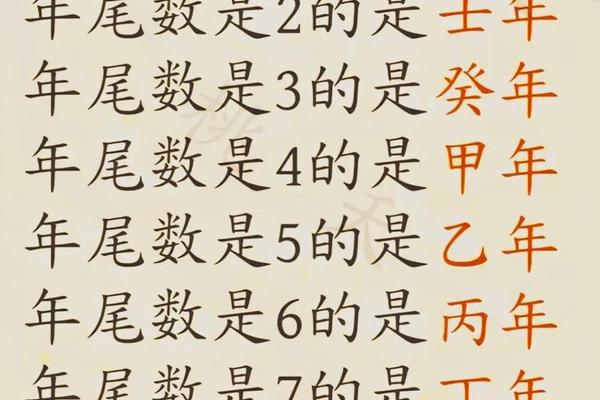 年尾数是2的是壬年
年尾数是3的是癸年
年尾数是4的是甲年
年尾数是5的是乙年
年尾数是6的是丙年
年尾数是7的是丁年